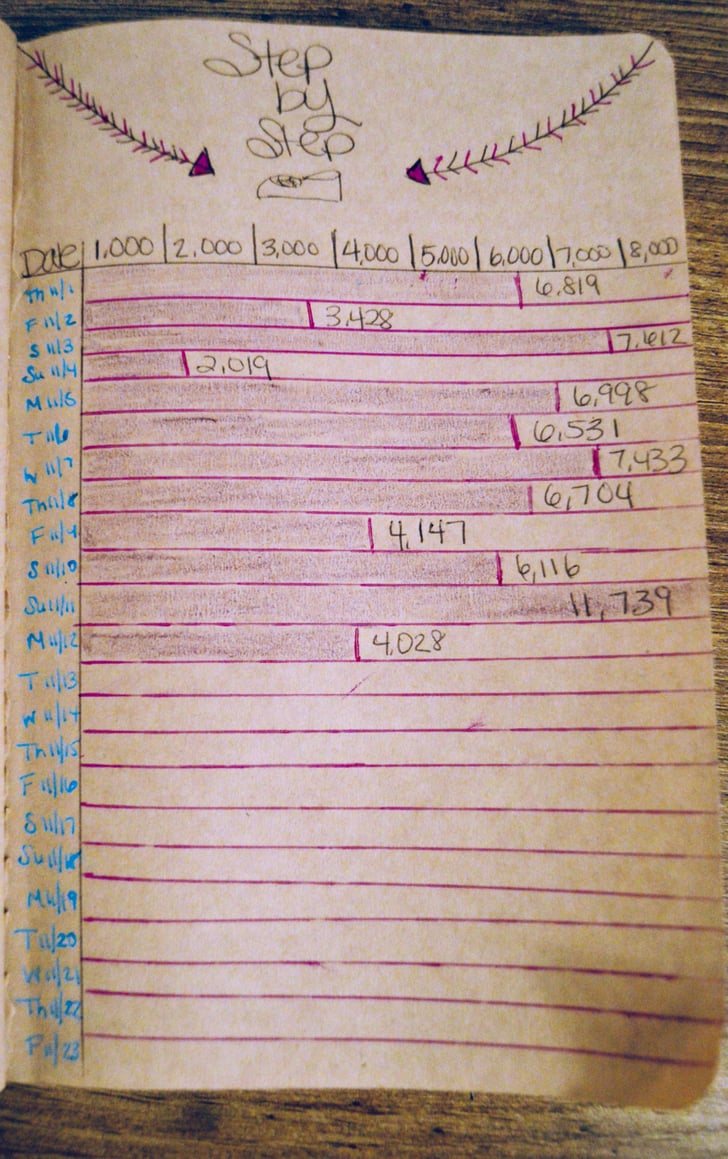 Step
by
Step
Date 1,000 2,000 3,000 4,000 5,000 6,000 7,000 8,000
Th 11/1 6,819
F 11/2 3,428
S 11/3 7,612
Su 11/4 2,019
M 11/5 6,998
T 11/6 6,531
W 11/7 7,433
Th 11/8 6,704
F 11/9 4,147
S 11/10 6,116
Su 11/11 11,739
M 11/12 4,028
T 11/13
W 11/14
Th 11/15
F 11/16
S 11/17
Su 11/18
M 11/19
T 11/20
W 11/21
Th 11/22
F 11/23